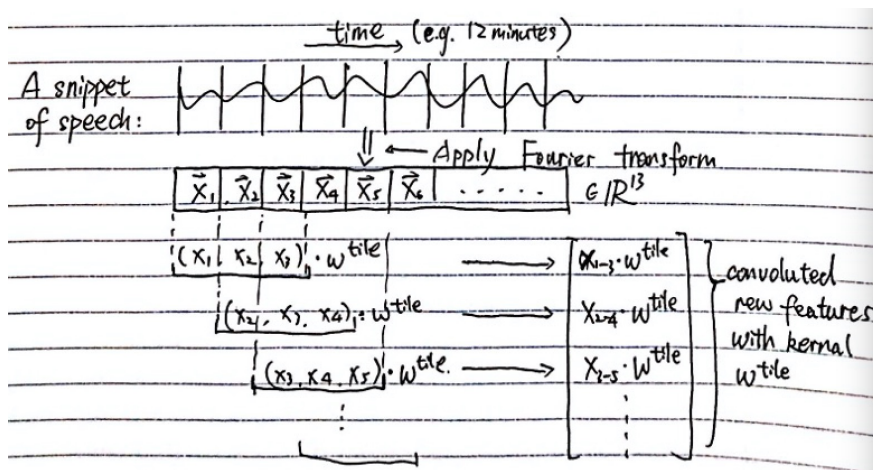 time (e.g. 12 minutes)
A snippet
of speech:
Apply Fourier transform
x⃗₁ x⃗₂ x⃗₃ x⃗₄ x⃗₅ x⃗₆ ...... ∈ ℝ¹³
(x₁, x₂, x₃)·w^tile → x₁₋₃·w^tile
(x₂, x₃, x₄)·w^tile → x₂₋₄·w^tile
(x₃, x₄, x₅)·w^tile. → x₃₋₅·w^tile
convoluted
new features
with kernal
w^tile